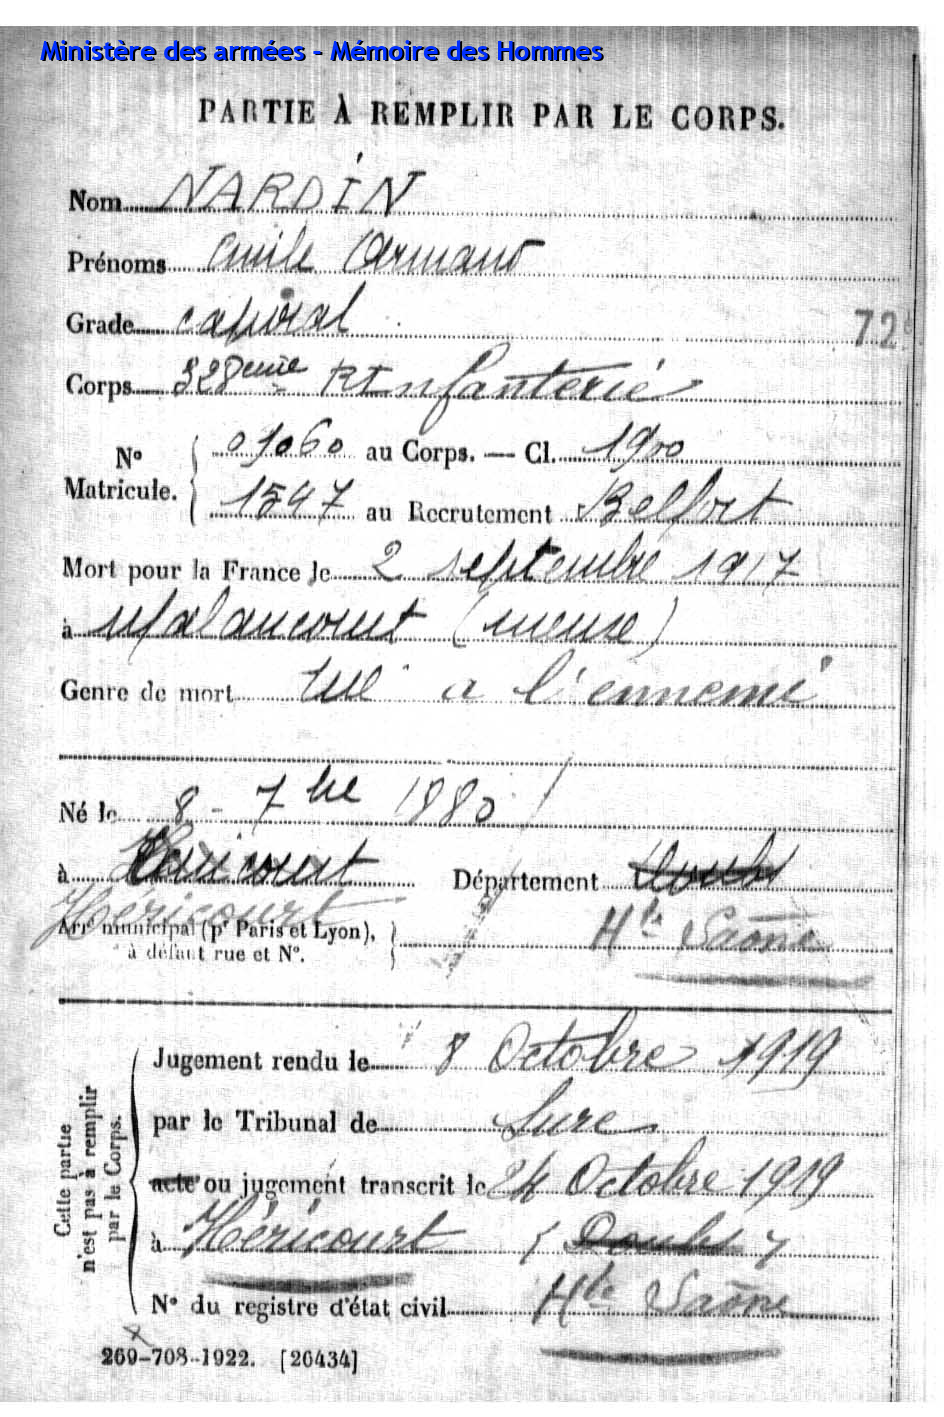 Ministère des armées - Mémoire des Hommes
PARTIE À REMPLIR PAR LE CORPS.
Nom NARDIN
Prénoms Emile Armand
Grade caporal
72
Corps 328eme RInfanterie
N° Matricule. { 01060 au Corps. — Cl. 1900
1547 au Recrutement Belfort
Mort pour la France le 2 septembre 1917
à Malancourt (meuse)
Genre de mort tué a l'ennemi
Né le 8 - 7bre 1880
à Héricourt Département Doubs
Héricourt
Arrt municipal (pr Paris et Lyon), à défaut rue et N°. } Hte Saône
Cette partie n'est pas à remplir par le Corps.
Jugement rendu le 8 Octobre 1919
par le Tribunal de Lure
acte ou jugement transcrit le 24 Octobre 1919
à Héricourt (Doubs)
Hte Saône
N° du registre d'état civil
269-708-1922. [26434]